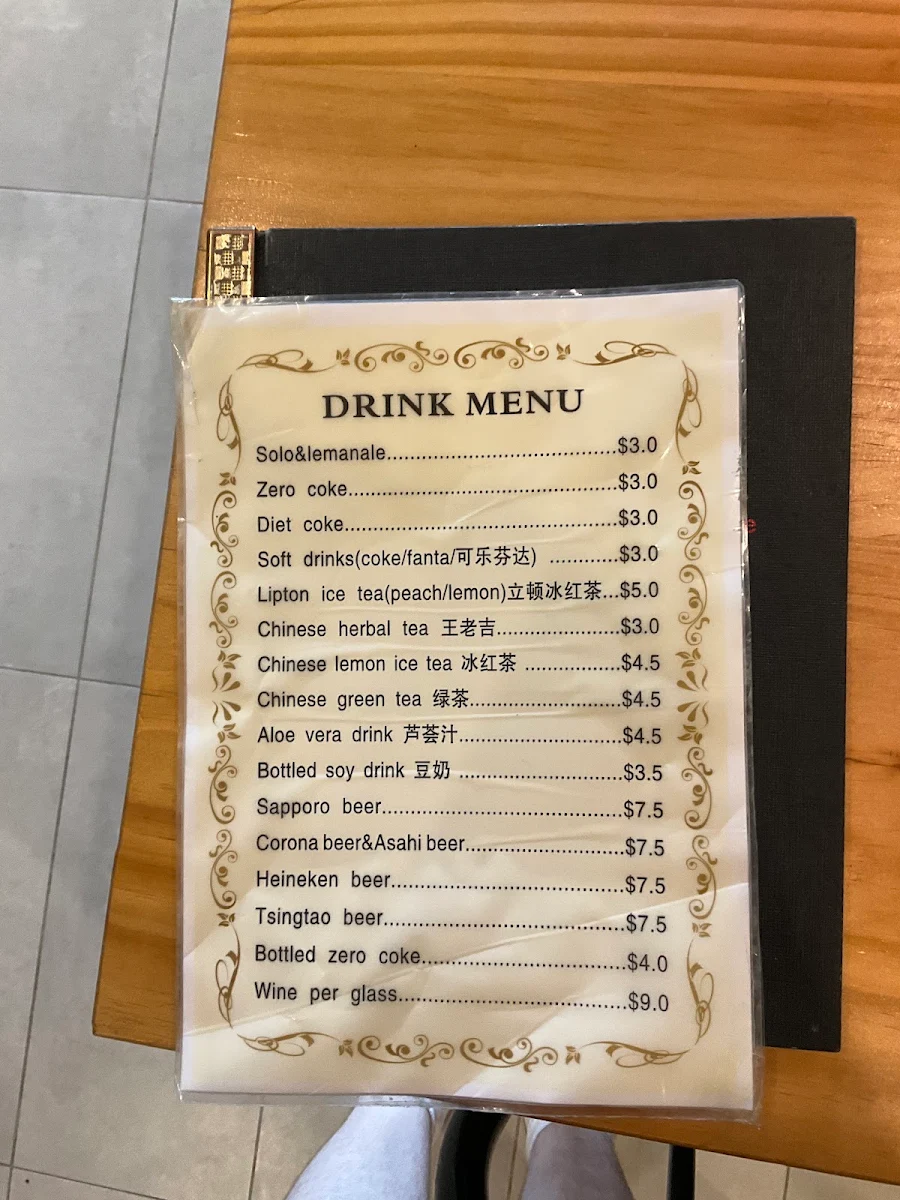 DRINK MENU
Solo&lemanale.......................................$3.0
Zero coke.............................................$3.0
Diet coke..............................................$3.0
Soft drinks(coke/fanta/可乐芬达) ............$3.0
Lipton ice tea(peach/lemon)立顿冰红茶...$5.0
Chinese herbal tea 王老吉.....................$3.0
Chinese lemon ice tea 冰红茶 ................$4.5
Chinese green tea 绿茶.........................$4.5
Aloe vera drink 芦荟汁...........................$4.5
Bottled soy drink 豆奶 ...........................$3.5
Sapporo beer........................................$7.5
Corona beer&Asahi beer..........................$7.5
Heineken beer.......................................$7.5
Tsingtao beer........................................$7.5
Bottled zero coke..................................$4.0
Wine per glass......................................$9.0